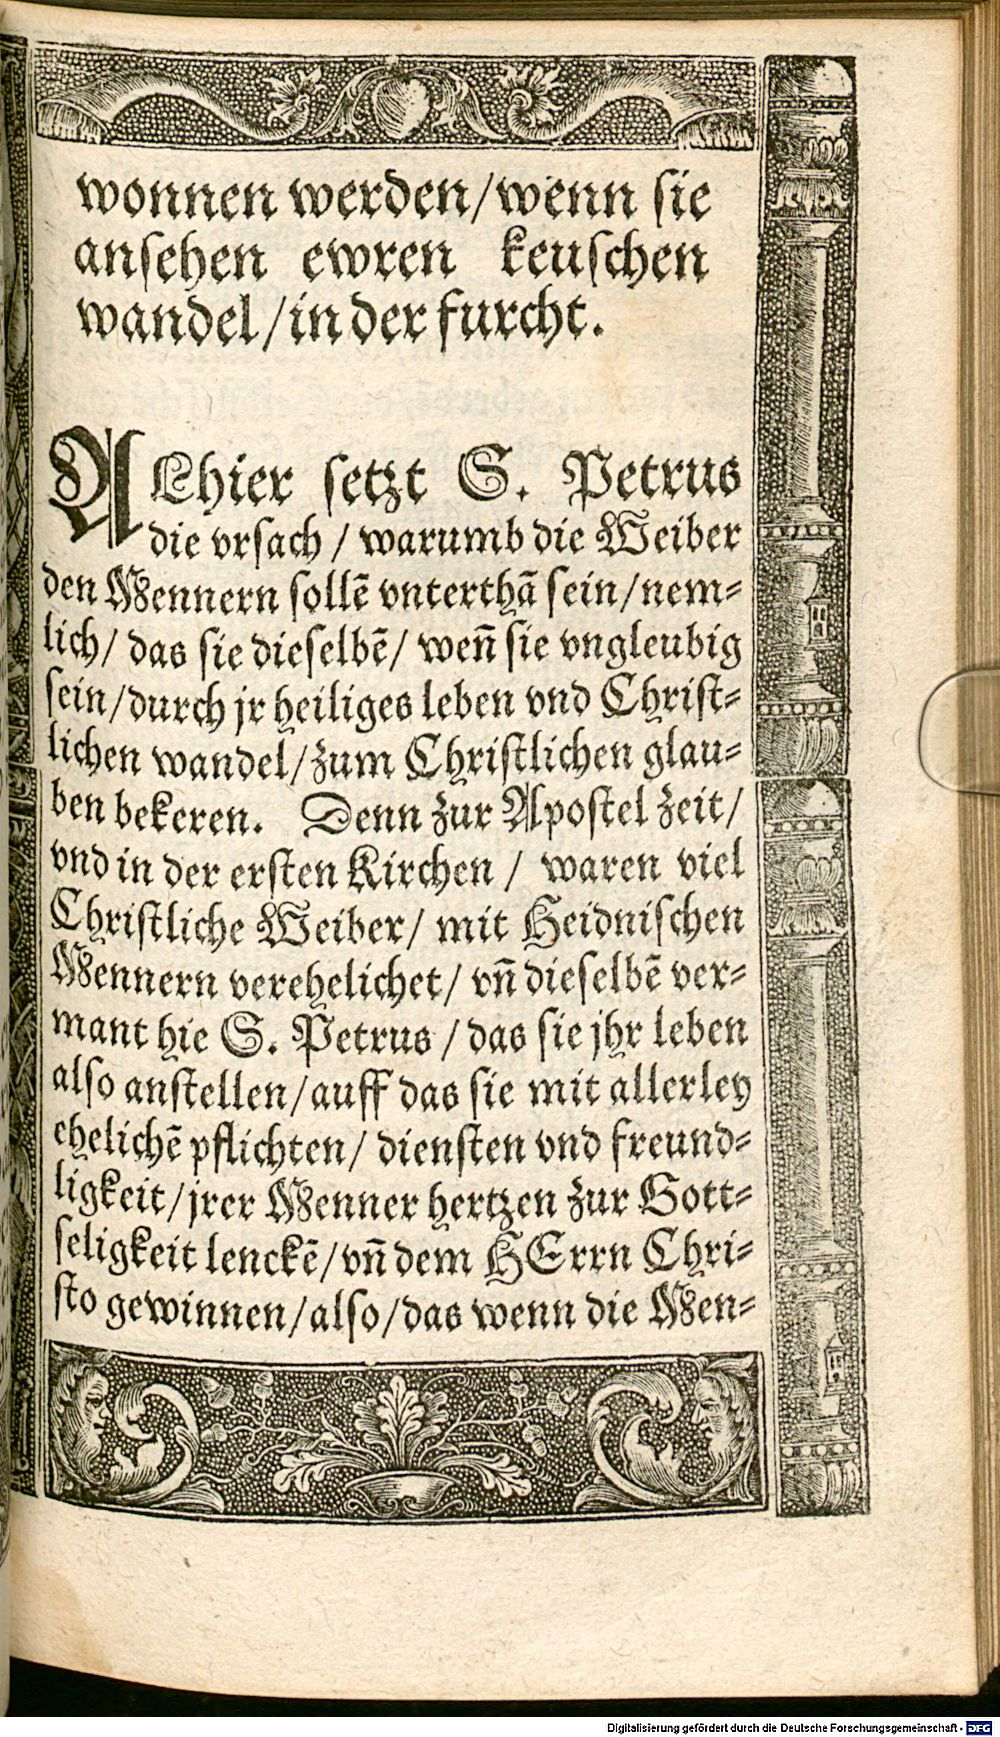 wonnen werden/wenn sie
ansehen ewren keuschen
wandel/in der furcht.
ALhier setzt S. Petrus
die vrsach / warumb die Weiber
den Mennern sollē vnterthā sein/nem⸗
lich/ das sie dieselbē/ weñ sie vngleubig
sein/durch jr heiliges leben vnd Christ⸗
lichen wandel/zum Christlichen glau⸗
ben bekeren. Denn zur Apostel zeit/
vnd in der ersten Kirchen / waren viel
Christliche Weiber/ mit Heidnischen
Mennern verehelichet/ vñ dieselbē ver⸗
mant hie S. Petrus / das sie jhr leben
also anstellen/auff das sie mit allerley
ehelichē pflichten/ diensten vnd freund⸗
ligkeit/jrer Menner hertzen zur Gott⸗
seligkeit lenckē/vñ dem HErrn Chri⸗
sto gewinnen/also/das wenn die Men⸗
Digitalisierung gefördert durch die Deutsche Forschungsgemeinschaft - DFG